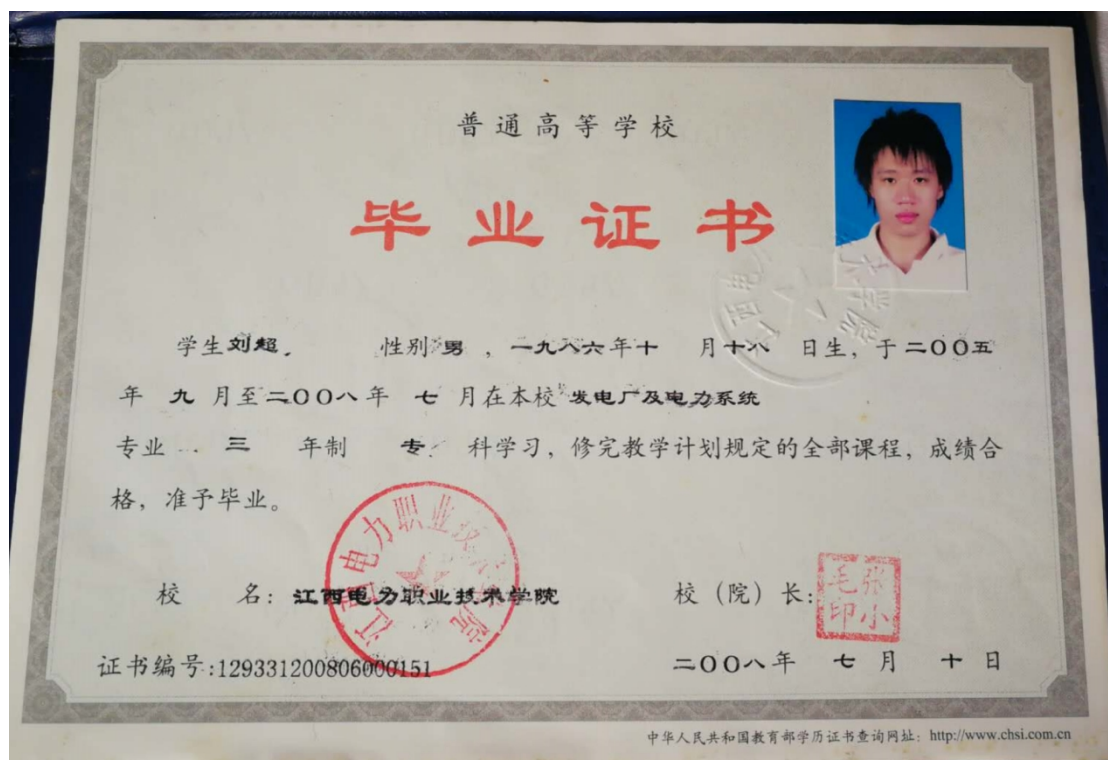 普通高等学校
毕业证书
学生刘超, 性别男,一九八六年十 月十八 日生,于二〇〇五
年 九 月至二〇〇八年 七 月在本校 发电厂及电力系统
专业 三 年制 专 科学习,修完教学计划规定的全部课程,成绩合
格,准予毕业。
江西电力职业技术学院
校 名:江西电力职业技术学院 校(院)长:
张小毛印
证书编号:129331200806000151 二〇〇八年 七 月 十 日
中华人民共和国教育部学历证书查询网址:http://www.chsi.com.cn